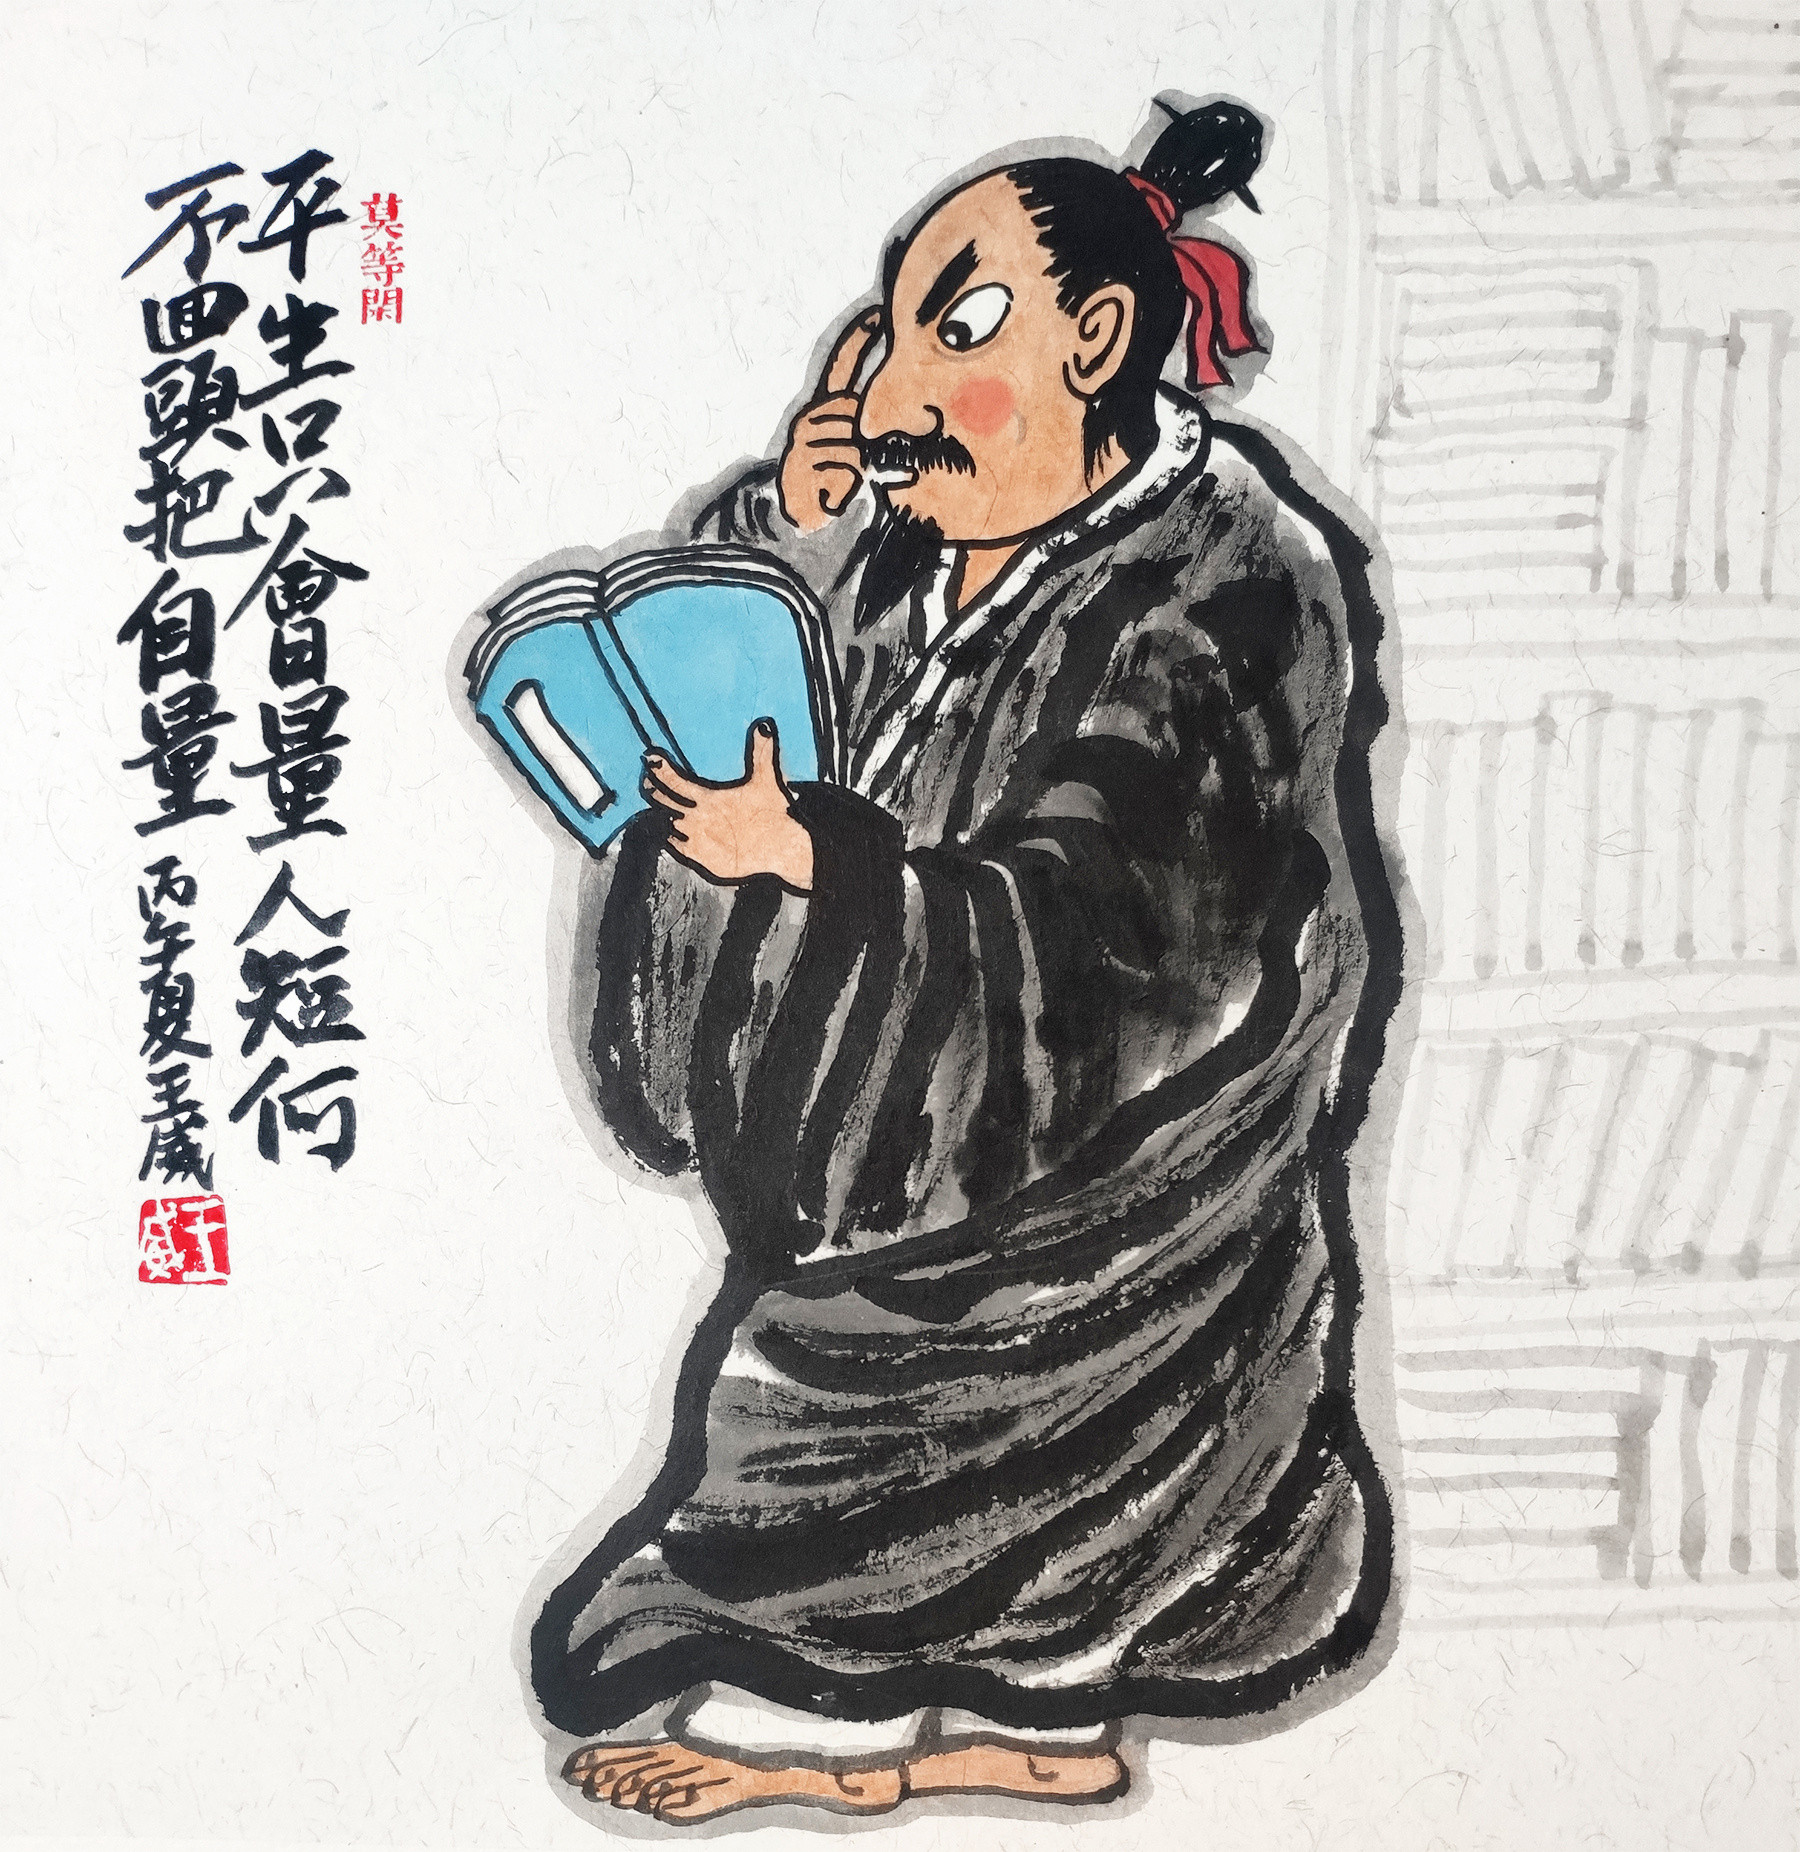 莫等閑
平生只會量人短何
不回頭把自量
丙午夏王成
王成